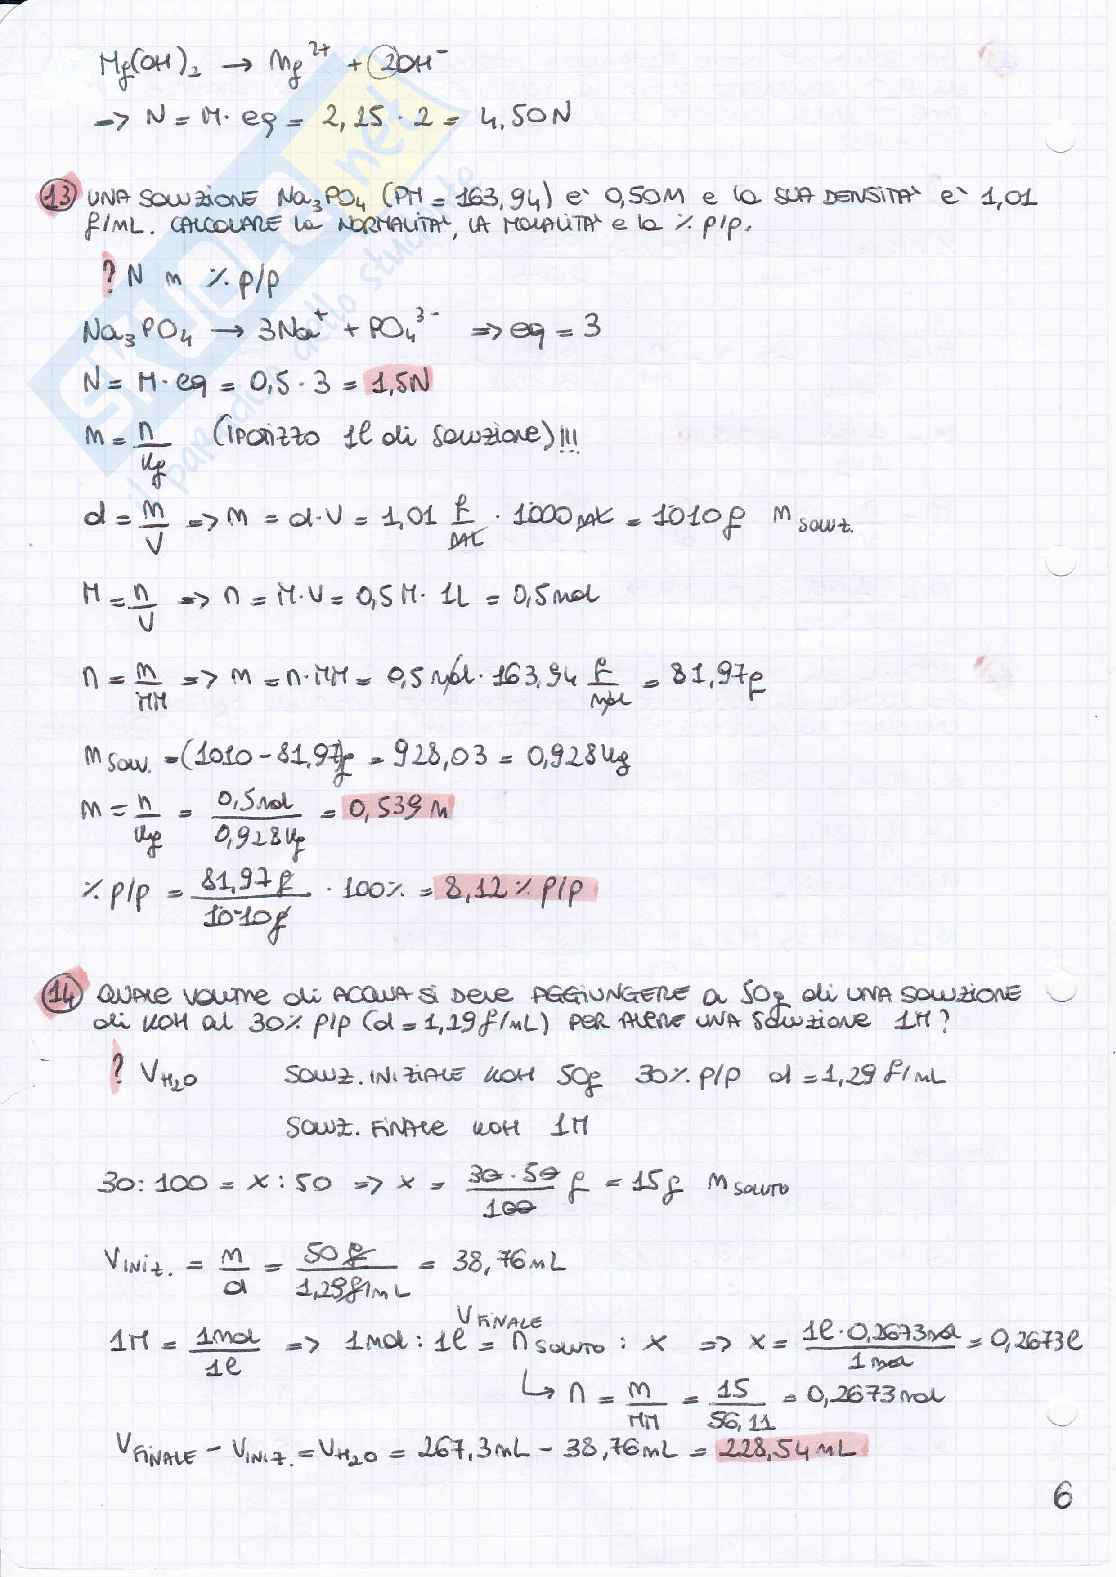 Mg(OH)₂ → Mg²⁺ + 2OH⁻
=> N = M · eq = 2,25 · 2 = 4,50N
13 UNA SOLUZIONE Na₃PO₄ (PM = 163,94) è 0,50M e la SUA DENSITA' e' 1,01
g/mL. CALCOLARE la NORMALITA', LA MOLALITA' e la % p/p.
? N m % p/p
Na₃PO₄ → 3Na⁺ + PO₄³⁻ => eq = 3
N = M · eq = 0,5 · 3 = 1,5N
m = n/Kg (IPOTIZZO 1l di SOLUZIONE)!!!
d = m/V => m = d·V = 1,01 g/mL · 1000mL = 1010g m SOLUZ.
M = n/V => n = M·V = 0,5M · 1L = 0,5mol
n = m/MM => m = n·MM = 0,5mol · 163,94 g/mol = 81,97g
m SOLV. = (1010 - 81,97)g = 928,03 = 0,928Kg
m = n/Kg = 0,5mol/0,928Kg = 0,539 m
% p/p = 81,97g/1010g · 100% = 8,12% p/p
14 QUALE VOLUME di ACQUA SI DEVE AGGIUNGERE a 50g di UNA SOLUZIONE
di KOH al 30% p/p (d = 1,29 g/mL) PER AVERE UNA SOLUZIONE 1M?
? V H₂O SOLUZ. INIZIALE KOH 50g 30% p/p d = 1,29 g/mL
SOLUZ. FINALE KOH 1M
30 : 100 = x : 50 => x = 30·50/100 g = 15g m SOLUTO
V INIZ. = m/d = 50g/1,29g/mL = 38,76mL
V FINALE
1M = 1mol/1l => 1mol : 1l = n SOLUTO : x => x = 1l · 0,2673mol/1mol = 0,2673l
↳ n = m/MM = 15/56,11 = 0,2673mol
V FINALE - V INIZ. = V H₂O = 267,3mL - 38,76mL = 228,54mL
6